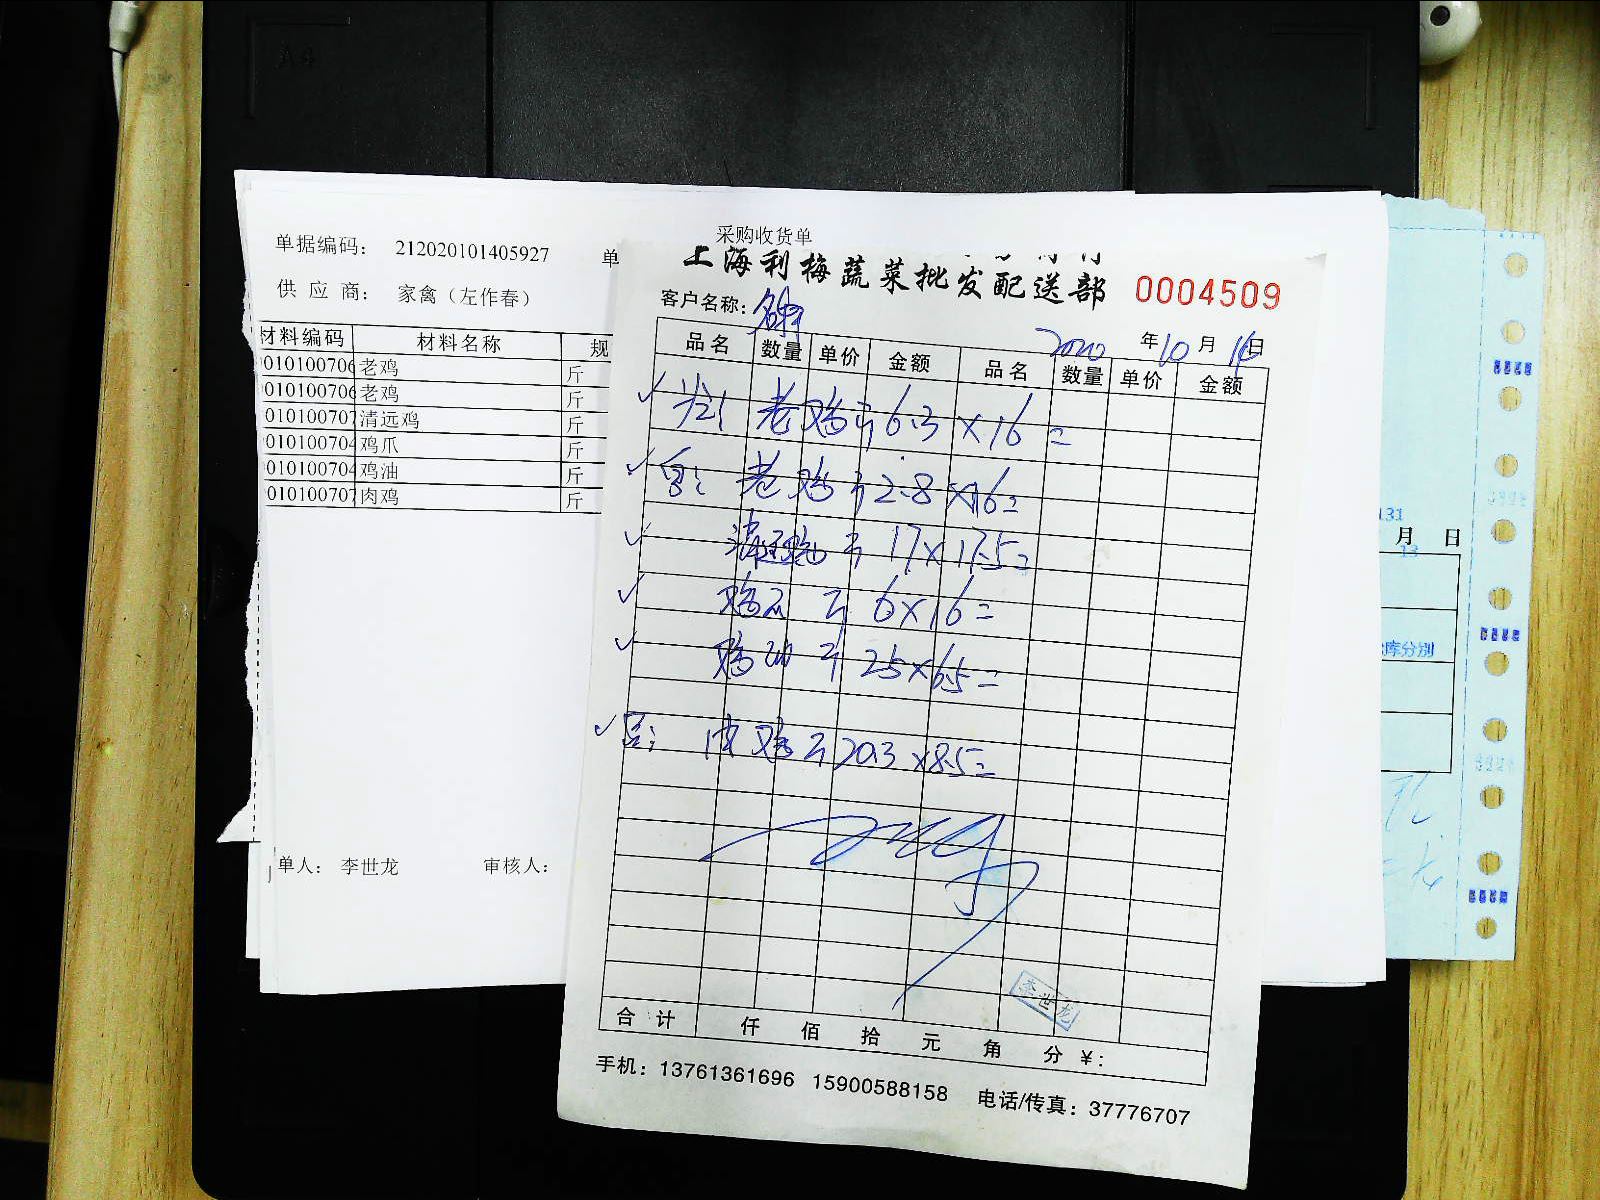 A4
采购收货单
单据编码： 212020101405927 单
供 应 商： 家禽（左作春）
材料编码 材料名称 规
010100706 老鸡 斤
010100706 老鸡 斤
010100707 清远鸡 斤
010100704 鸡爪 斤
010100704 鸡油 斤
010100707 肉鸡 斤
单人： 李世龙 审核人：
上海利梅蔬菜批发配送部 0004509
客户名称：
2020 年 10 月 14 日
品名 数量 单价 金额 品名 数量 单价 金额
老鸡 6.3×16=
老鸡 2.8×16=
清远鸡 17×17.5=
鸡爪 6×16=
鸡油 25×6.5=
肉鸡 20.3×8.5=
李世龙
合 计 仟 佰 拾 元 角 分 ¥：
手机：13761361696 15900588158 电话/传真：37776707
131
月 日
13
库分别